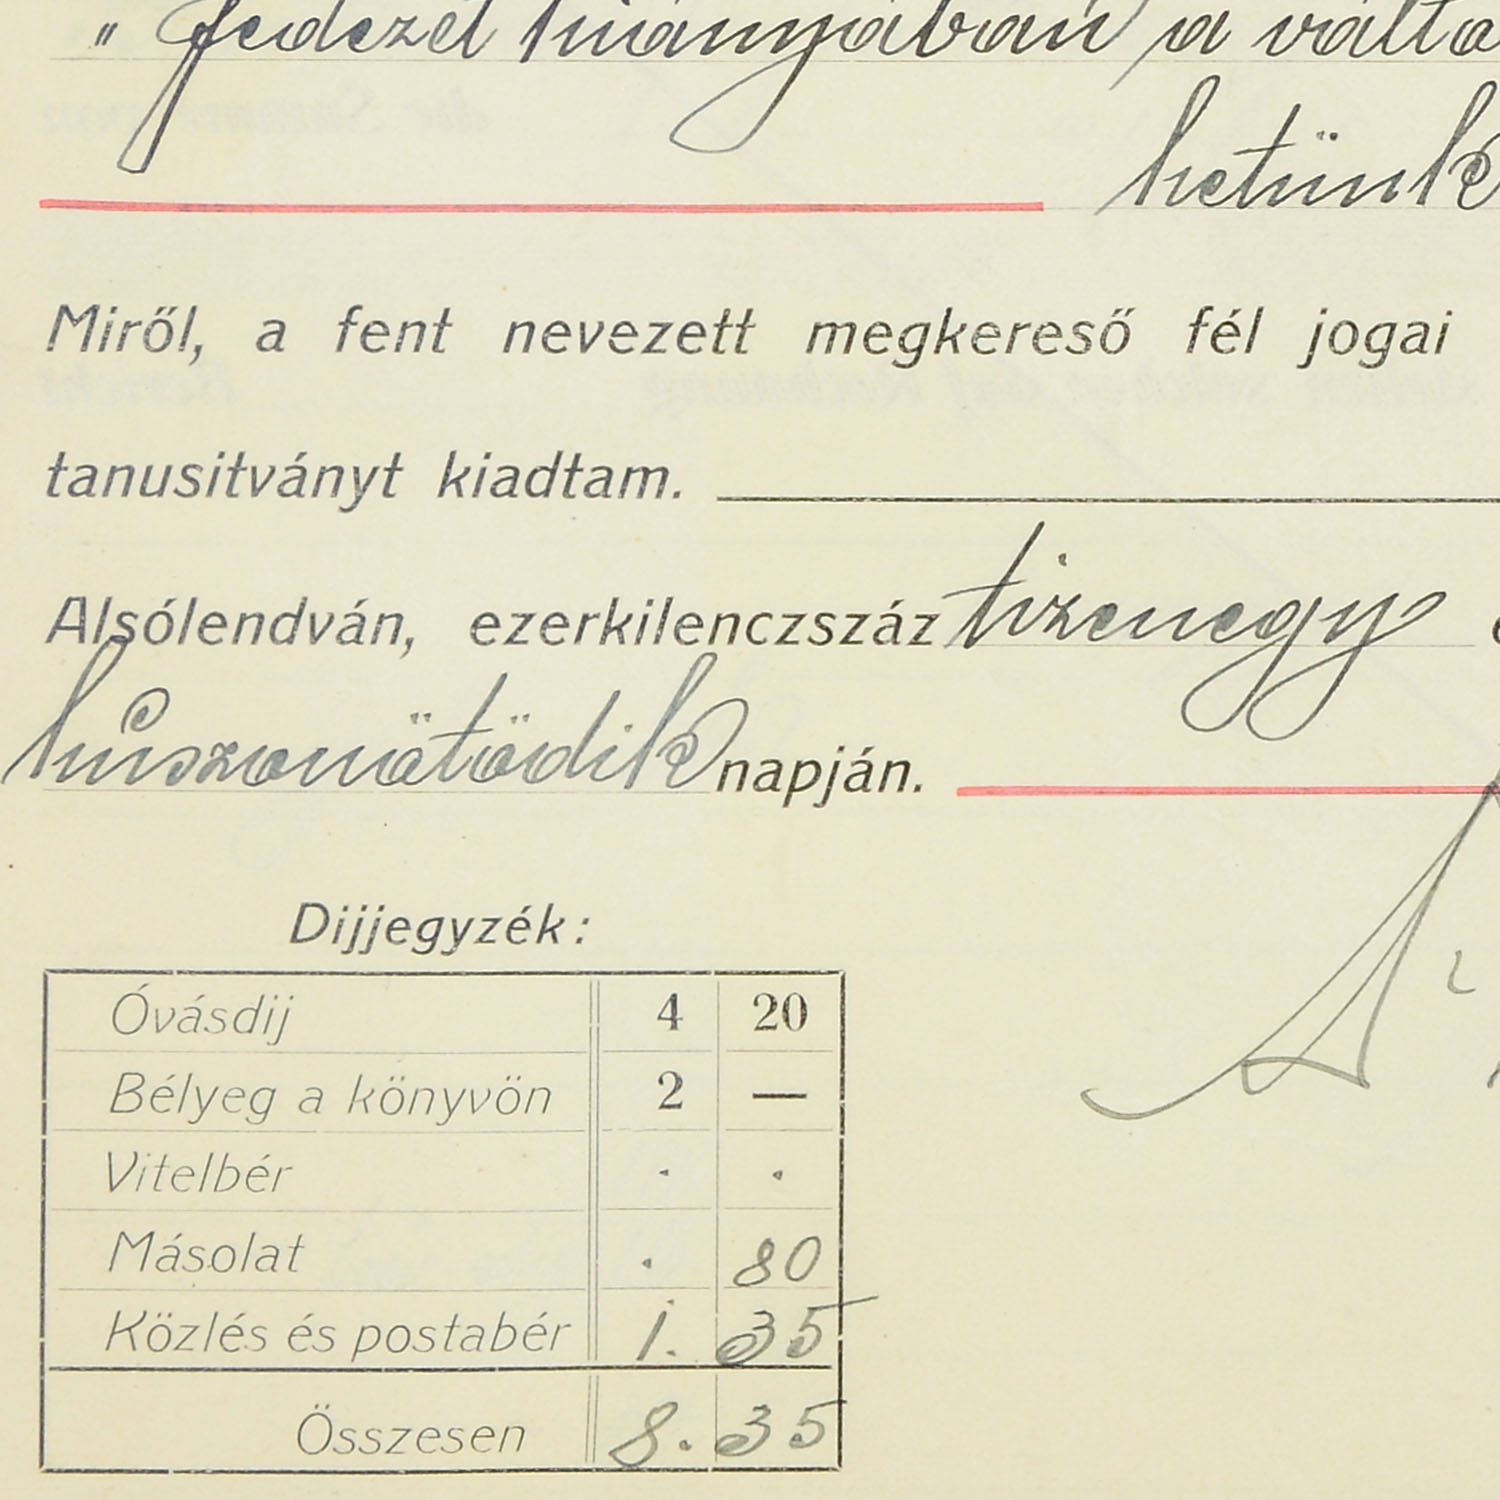 " fedezet hiányában a válta
hetünk
Miről, a fent nevezett megkereső fél jogai
tanusitványt kiadtam.
Alsólendván, ezerkilenczszáz tizenegy
húszonötödik napján.
Dijjegyzék:
Óvásdij 4 20
Bélyeg a könyvön 2 —
Vitelbér . .
Másolat . 80
Közlés és postabér 1. 35
Összesen 8. 35